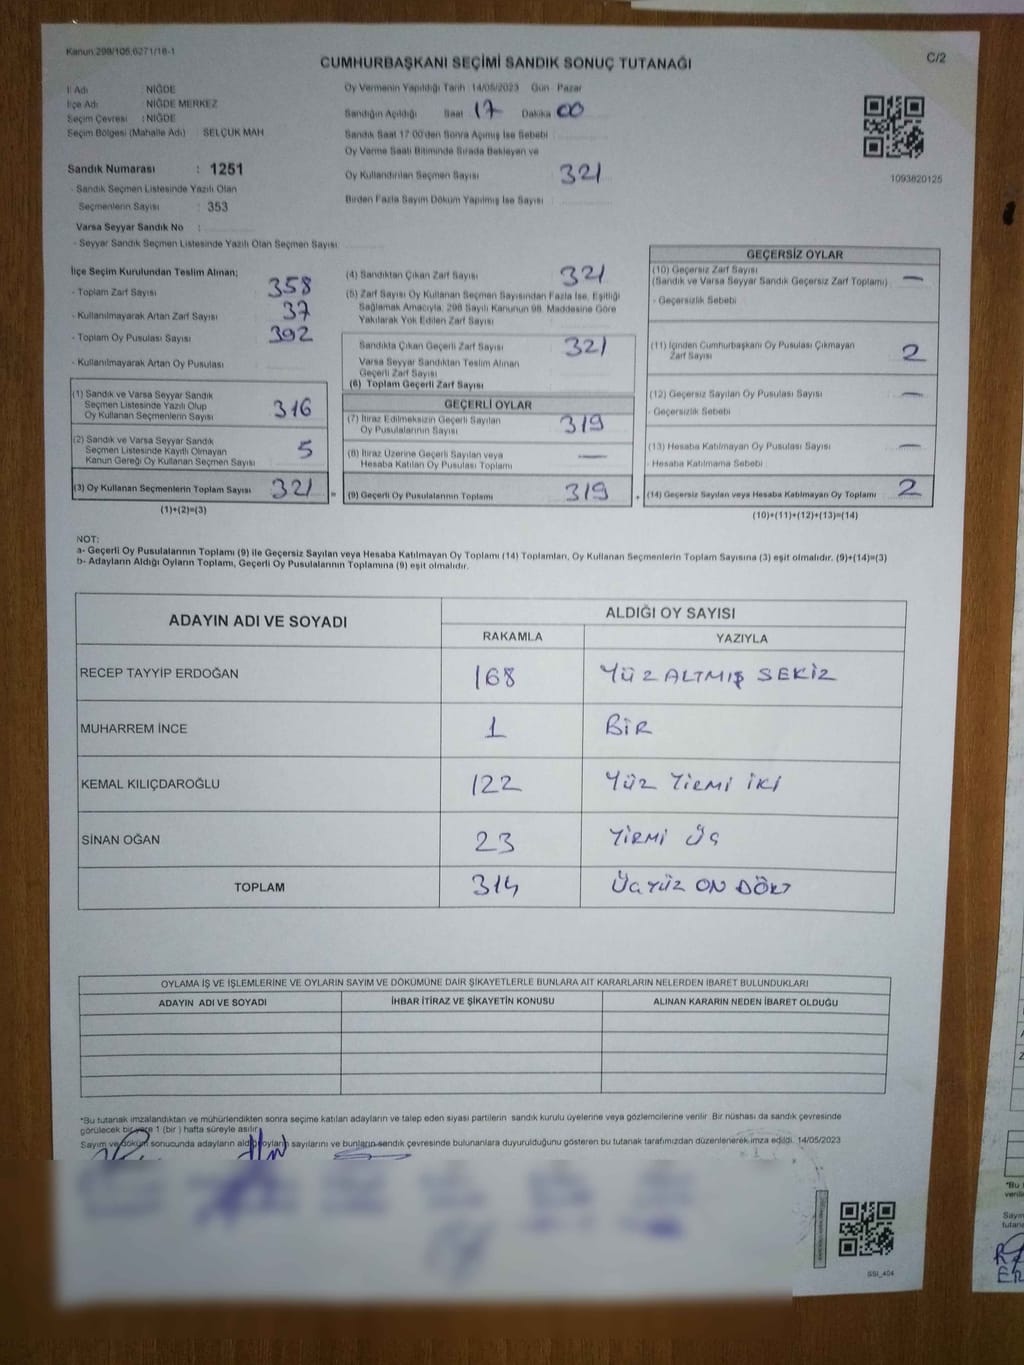 Kanun 298/105,6271/16-1
CUMHURBAŞKANI SEÇİMİ SANDIK SONUÇ TUTANAĞI
C/2
İl Adı : NİĞDE
İlçe Adı : NİĞDE MERKEZ
Seçim Çevresi : NİĞDE
Seçim Bölgesi (Mahalle Adı) SELÇUK MAH
Sandık Numarası : 1251
- Sandık Seçmen Listesinde Yazılı Olan
Seçmenlerin Sayısı : 353
Varsa Seyyar Sandık No :
- Seyyar Sandık Seçmen Listesinde Yazılı Olan Seçmen Sayısı
Oy Vermenin Yapıldığı Tarih 14/05/2023 Gün Pazar
Sandığın Açıldığı Saat 17 Dakika 00
Sandık Saat 17 00'den Sonra Açılmış İse Sebebi
Oy Verme Saati Bitiminde Sırada Bekleyen ve
Oy Kullandırılan Seçmen Sayısı 321
Birden Fazla Sayım Döküm Yapılmış İse Sayısı
1093820125
İlçe Seçim Kurulundan Teslim Alınan;
- Toplam Zarf Sayısı 358
- Kullanılmayarak Artan Zarf Sayısı 37
- Toplam Oy Pusulası Sayısı 392
- Kullanılmayarak Artan Oy Pusulası
(1) Sandık ve Varsa Seyyar Sandık
Seçmen Listesinde Yazılı Olup
Oy Kullanan Seçmenlerin Sayısı 316
(2) Sandık ve Varsa Seyyar Sandık
Seçmen Listesinde Kayıtlı Olmayan
Kanun Gereği Oy Kullanan Seçmen Sayısı 5
(3) Oy Kullanan Seçmenlerin Toplam Sayısı 321 =
(1)+(2)=(3)
(4) Sandıktan Çıkan Zarf Sayısı 321
(5) Zarf Sayısı Oy Kullanan Seçmen Sayısından Fazla İse, Eşitliği
Sağlamak Amacıyla, 298 Sayılı Kanunun 98. Maddesine Göre
Yakılarak Yok Edilen Zarf Sayısı
Sandıkta Çıkan Geçerli Zarf Sayısı 321
Varsa Seyyar Sandıktan Teslim Alınan
Geçerli Zarf Sayısı
(6) Toplam Geçerli Zarf Sayısı
GEÇERLİ OYLAR
(7) İtiraz Edilmeksizin Geçerli Sayılan
Oy Pusulalarının Sayısı 319
(8) İtiraz Üzerine Geçerli Sayılan veya
Hesaba Katılan Oy Pusulası Toplamı —
(9) Geçerli Oy Pusulalarının Toplamı 319 +
GEÇERSİZ OYLAR
(10) Geçersiz Zarf Sayısı
(Sandık ve Varsa Seyyar Sandık Geçersiz Zarf Toplamı) —
- Geçersizlik Sebebi
(11) İçinden Cumhurbaşkanı Oy Pusulası Çıkmayan
Zarf Sayısı 2
(12) Geçersiz Sayılan Oy Pusulası Sayısı —
- Geçersizlik Sebebi
(13) Hesaba Katılmayan Oy Pusulası Sayısı —
- Hesaba Katılmama Sebebi
(14) Geçersiz Sayılan veya Hesaba Katılmayan Oy Toplamı 2
(10)+(11)+(12)+(13)=(14)
NOT:
a- Geçerli Oy Pusulalarının Toplamı (9) ile Geçersiz Sayılan veya Hesaba Katılmayan Oy Toplamı (14) Toplamları, Oy Kullanan Seçmenlerin Toplam Sayısına (3) eşit olmalıdır. (9)+(14)=(3)
b- Adayların Aldığı Oyların Toplamı, Geçerli Oy Pusulalarının Toplamına (9) eşit olmalıdır.
ADAYIN ADI VE SOYADI ALDIĞI OY SAYISI
RAKAMLA YAZIYLA
RECEP TAYYİP ERDOĞAN 168 YÜZ ALTMIŞ SEKİZ
MUHARREM İNCE 1 BİR
KEMAL KILIÇDAROĞLU 122 YÜZ YİRMİ İKİ
SİNAN OĞAN 23 YİRMİ ÜÇ
TOPLAM 314 ÜÇ YÜZ ON DÖRT
OYLAMA İŞ VE İŞLEMLERİNE VE OYLARIN SAYIM VE DÖKÜMÜNE DAİR ŞİKAYETLERLE BUNLARA AİT KARARLARIN NELERDEN İBARET BULUNDUKLARI
ADAYIN ADI VE SOYADI İHBAR İTİRAZ VE ŞİKAYETİN KONUSU ALINAN KARARIN NEDEN İBARET OLDUĞU
*Bu tutanak imzalandıktan ve mühürlendikten sonra seçime katılan adayların ve talep eden siyasi partilerin sandık kurulu üyelerine veya gözlemcilerine verilir. Bir nüshası da sandık çevresinde
görülecek bir yere 1 (bir) hafta süreyle asılır.
Sayım ve döküm sonucunda adayların aldığı oyların sayılarını ve bunların sandık çevresinde bulunanlara duyurulduğunu gösteren bu tutanak tarafımızdan düzenlenerek imza edildi. 14/05/2023
SSI_404